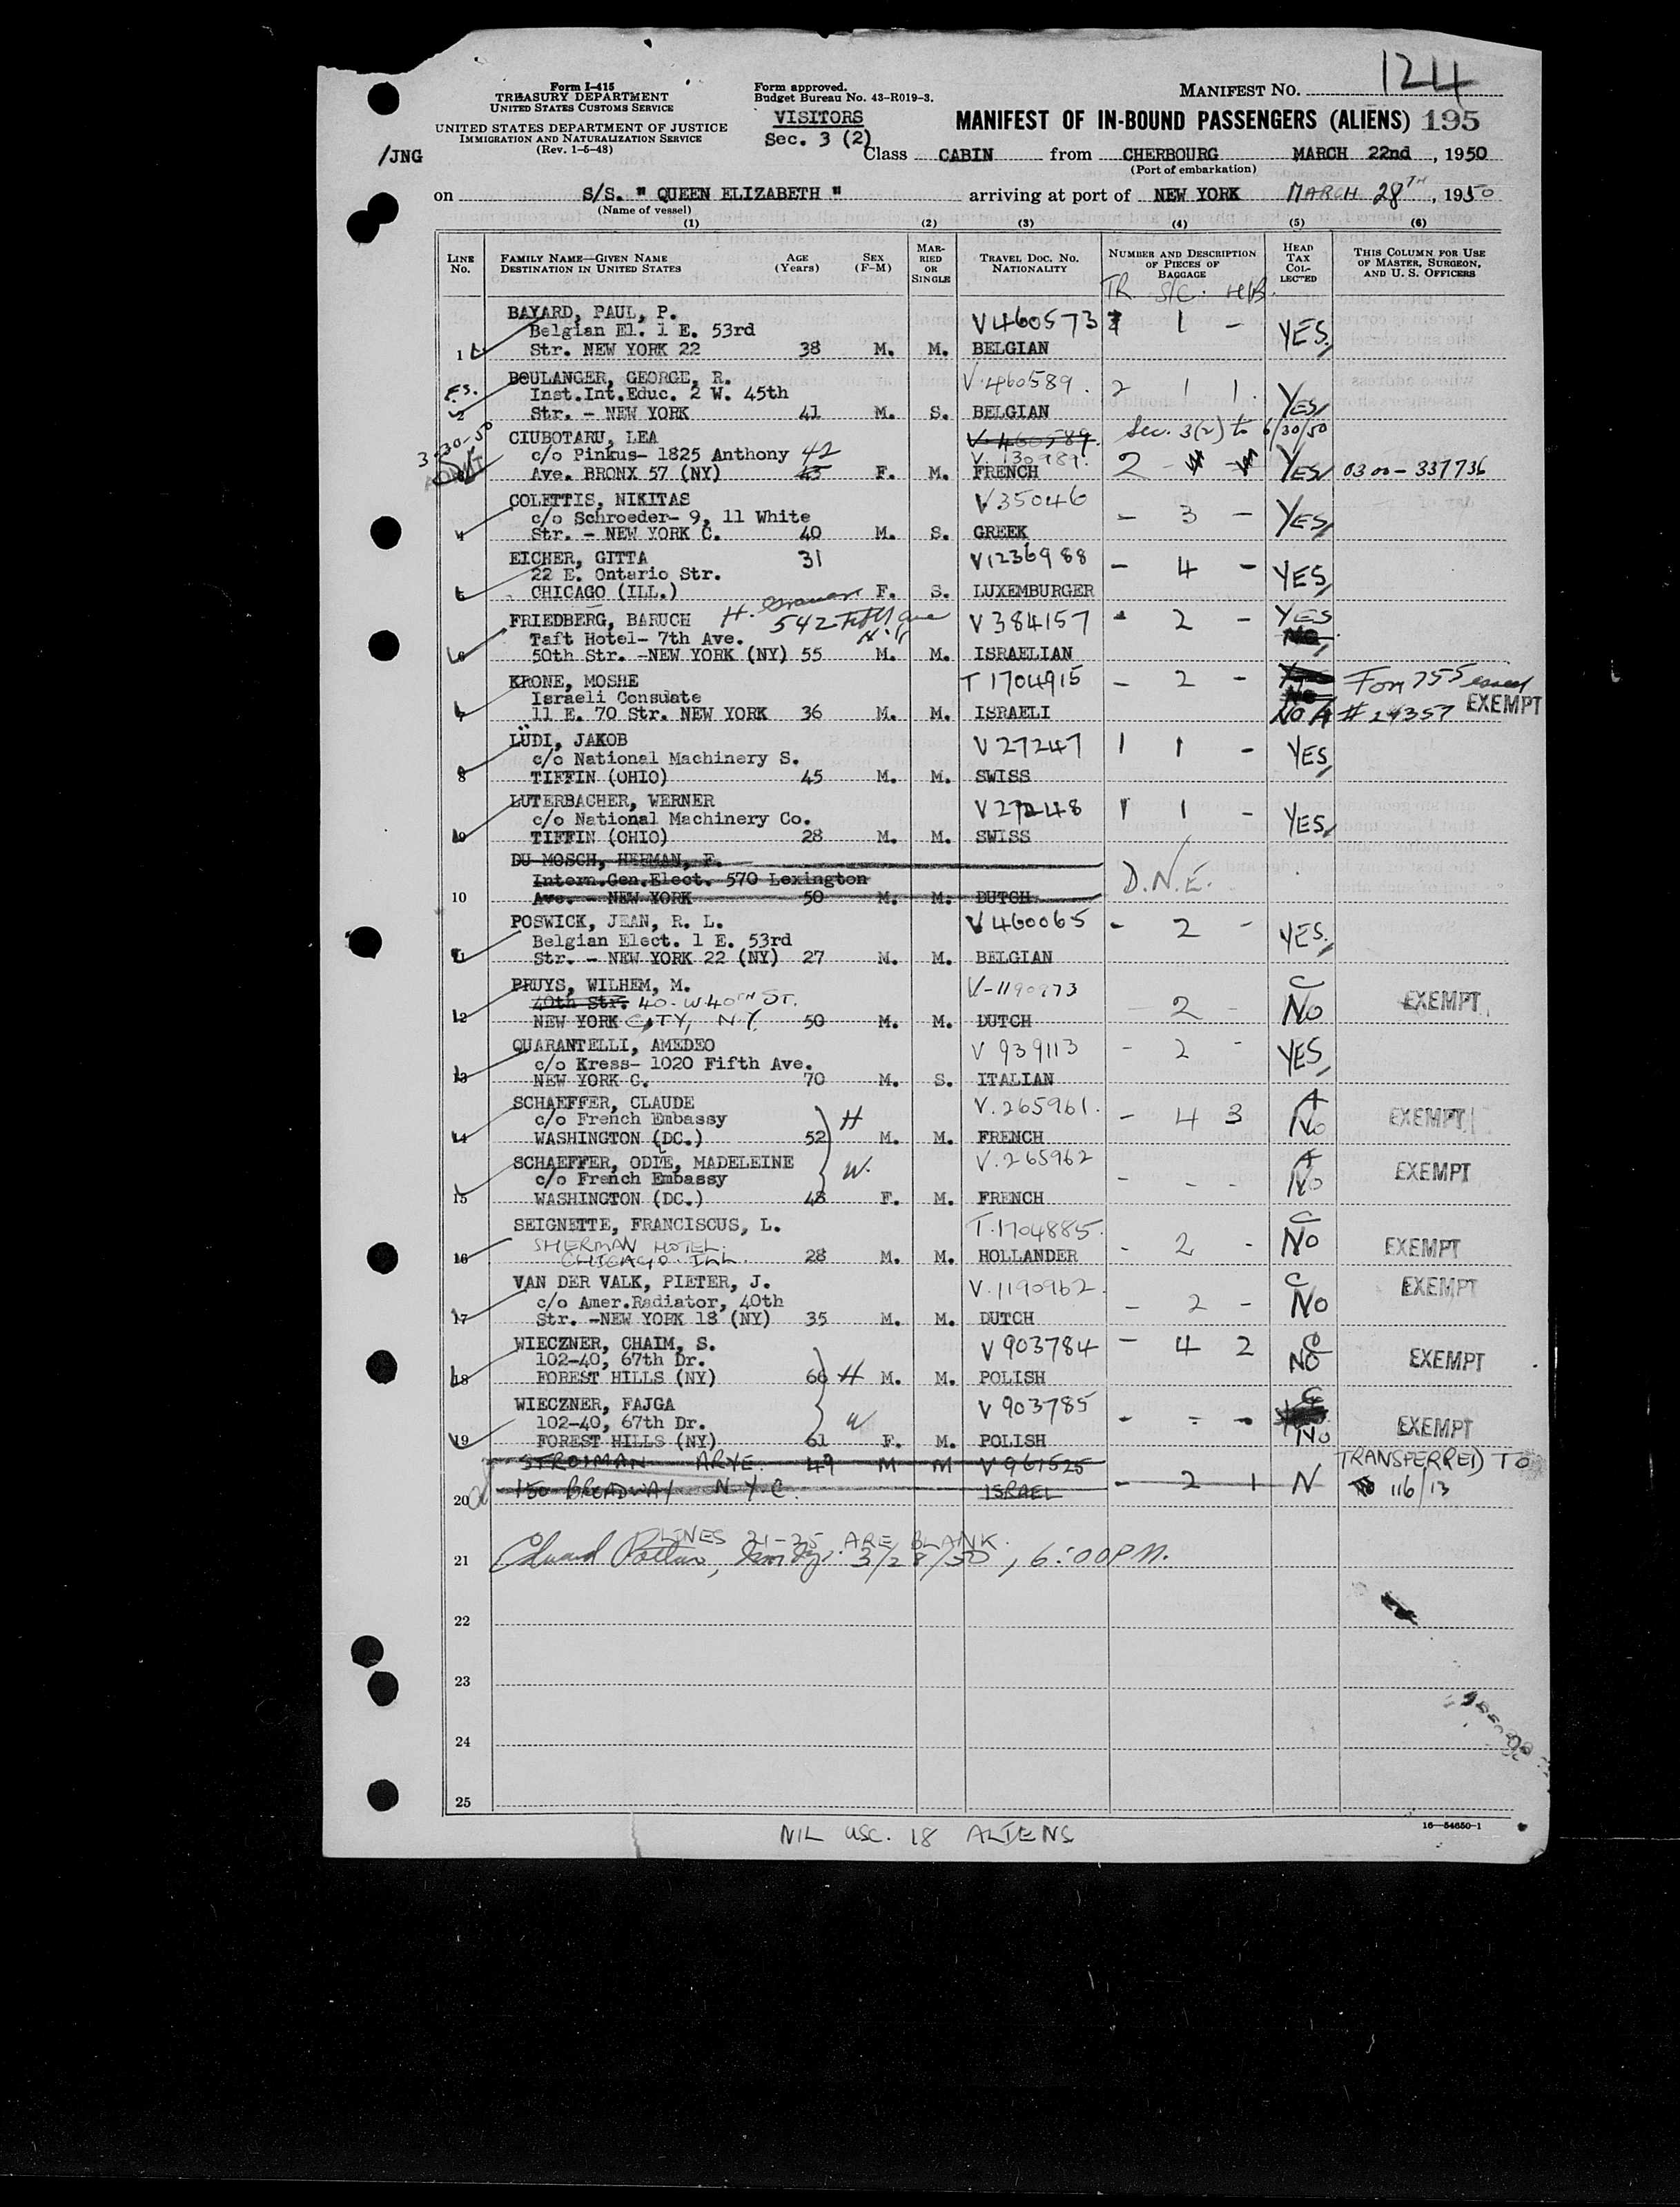 Form I-415
TREASURY DEPARTMENT
UNITED STATES CUSTOMS SERVICE
UNITED STATES DEPARTMENT OF JUSTICE
IMMIGRATION AND NATURALIZATION SERVICE
(Rev. 1-5-48)
/JNG
Form approved.
Budget Bureau No. 43-R019-3.
VISITORS
Sec. 3 (2)
MANIFEST NO. 1244
MANIFEST OF IN-BOUND PASSENGERS (ALIENS) 195
Class CABIN from CHERBOURG MARCH 22nd, 1950
(Port of embarkation)
on S/S. " QUEEN ELIZABETH " arriving at port of NEW YORK MARCH 28TH, 1950
(Name of vessel)
(1) (2) (3) (4) (5) (6)
LINE NO. FAMILY NAME—GIVEN NAME DESTINATION IN UNITED STATES AGE (Years) SEX (F-M) MARRIED OR SINGLE TRAVEL DOC. NO. NATIONALITY NUMBER AND DESCRIPTION OF PIECES OF BAGGAGE HEAD TAX COLLECTED THIS COLUMN FOR USE OF MASTER, SURGEON, AND U. S. OFFICERS
TR. S/C. H/B.
BAYARD, PAUL, P. V460573 1 - YES
Belgian El. 1 E. 53rd
1 Str. NEW YORK 22 38 M. M. BELGIAN
BOULANGER, GEORGE, R. V.460589. 2 1 1 YES
Inst.Int.Educ. 2 W. 45th
2 Str. - NEW YORK 41 M. S. BELGIAN
3-30-50
CIUBOTARU, LEA V.460589. Sec. 3(2) to 6/30/50
c/o Pinkus- 1825 Anthony 42 V.130989.
Ave. BRONX 57 (NY) 45 F. M. FRENCH 2 - - YES 0300-337736
COLETTIS, NIKITAS V35046 - 3 - YES
c/o Schroeder- 9, 11 White
4 Str. - NEW YORK C. 40 M. S. GREEK
EICHER, GITTA 31 V1236988 - 4 - YES
22 E. Ontario Str.
5 CHICAGO (ILL.) F. S. LUXEMBURGER
FRIEDBERG, BARUCH H. 542 Fifth Ave V384157 - 2 - YES
Taft Hotel- 7th Ave.
6 50th Str. -NEW YORK (NY) 55 M. M. ISRAELIAN
KRONE, MOSHE T 1704915 - 2 - Form 755 issued
Israeli Consuate EXEMPT
7 11 E. 70 Str. NEW YORK 36 M. M. ISRAELI NO A # 24357
LÜDI, JAKOB V27247 1 1 - YES
c/o National Machinery S.
8 TIFFIN (OHIO) 45 M. M. SWISS
LUTERBACHER, WERNER V27248 1 1 - YES
c/o National Machinery Co.
9 TIFFIN (OHIO) 28 M. M. SWISS
DU MOSCH, HERMAN, F. D.N.E.
Intern.Gen.Elect. 570 Lexington
10 Ave. - NEW YORK 50 M. M. DUTCH
POSWICK, JEAN, R. L. V460065 - 2 - YES
Belgian Elect. 1 E. 53rd
11 Str. - NEW YORK 22 (NY) 27 M. M. BELGIAN
PRUYS, WILHEM, M. V-1190973 C
40th Str. 40-W40TH ST. 2 - NO EXEMPT
12 NEW YORK CITY, N.Y. 50 M. M. DUTCH
QUARANTELLI, AMEDEO V 939113 - 2 - YES
c/o Kress- 1020 Fifth Ave.
13 NEW YORK C. 70 M. S. ITALIAN
SCHAEFFER, CLAUDE V.265961. - 4 3 A No EXEMPT
c/o French Embassy H
14 WASHINGTON (DC.) 52 M. M. FRENCH
SCHAEFFER, ODIE, MADELEINE V.265962 - - - A No EXEMPT
c/o French Embassy W.
15 WASHINGTON (DC.) 48 F. M. FRENCH
SEIGNETTE, FRANCISCUS, L. T.1704885. C
SHERMAN HOTEL. - 2 - NO EXEMPT
16 CHICAGO. ILL. 28 M. M. HOLLANDER
VAN DER VALK, PIETER, J. V.1190962. C EXEMPT
c/o Amer.Radiator, 40th - 2 - NO
17 Str. -NEW YORK 18 (NY) 35 M. M. DUTCH
WIECZNER, CHAIM, S. V903784 - 4 2 C NO EXEMPT
102-40, 67th Dr.
18 FOREST HILLS (NY) 66 H M. M. POLISH
WIECZNER, FAJGA V903785 C
102-40, 67th Dr. W - - - EXEMPT
19 FOREST HILLS (NY) 61 F. M. POLISH NO
STROIMAN ARYE 49 M M V961525 TRANSFERRED TO
20 150 BROADWAY N.Y.C. ISRAEL - 2 1 N 116/13
LINES 21-25 ARE BLANK.
21 3/28/50, 6:00PM.
22
23
24
25
NIL USC. 18 ALIENS
16—54650-1